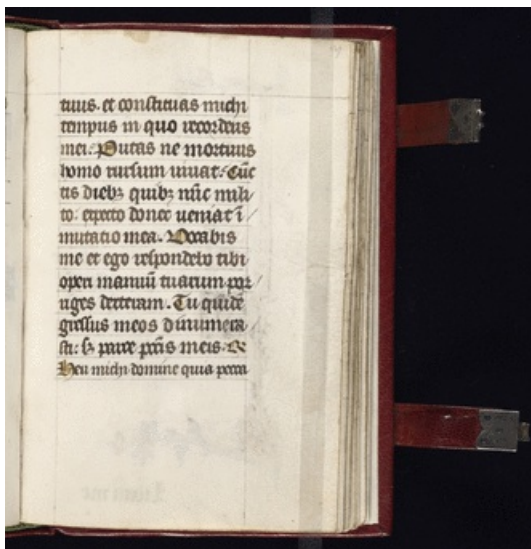 tuus. et constituas michi
tempus in quo recorderis
mei. Putas ne mortuus
homo rursum uiuat. Cūc
tis dieb; quib; nūc mili/
to. expecto donec ueniat ī/
mutatio mea. Vocabis
me et ego respondebo tibi
operi manuū tuarum por/
riges dexteram. Tu quidē
gressus meos dinumera/
sti: s; parce pctīs meis. R
Heu michi domine quia pecca